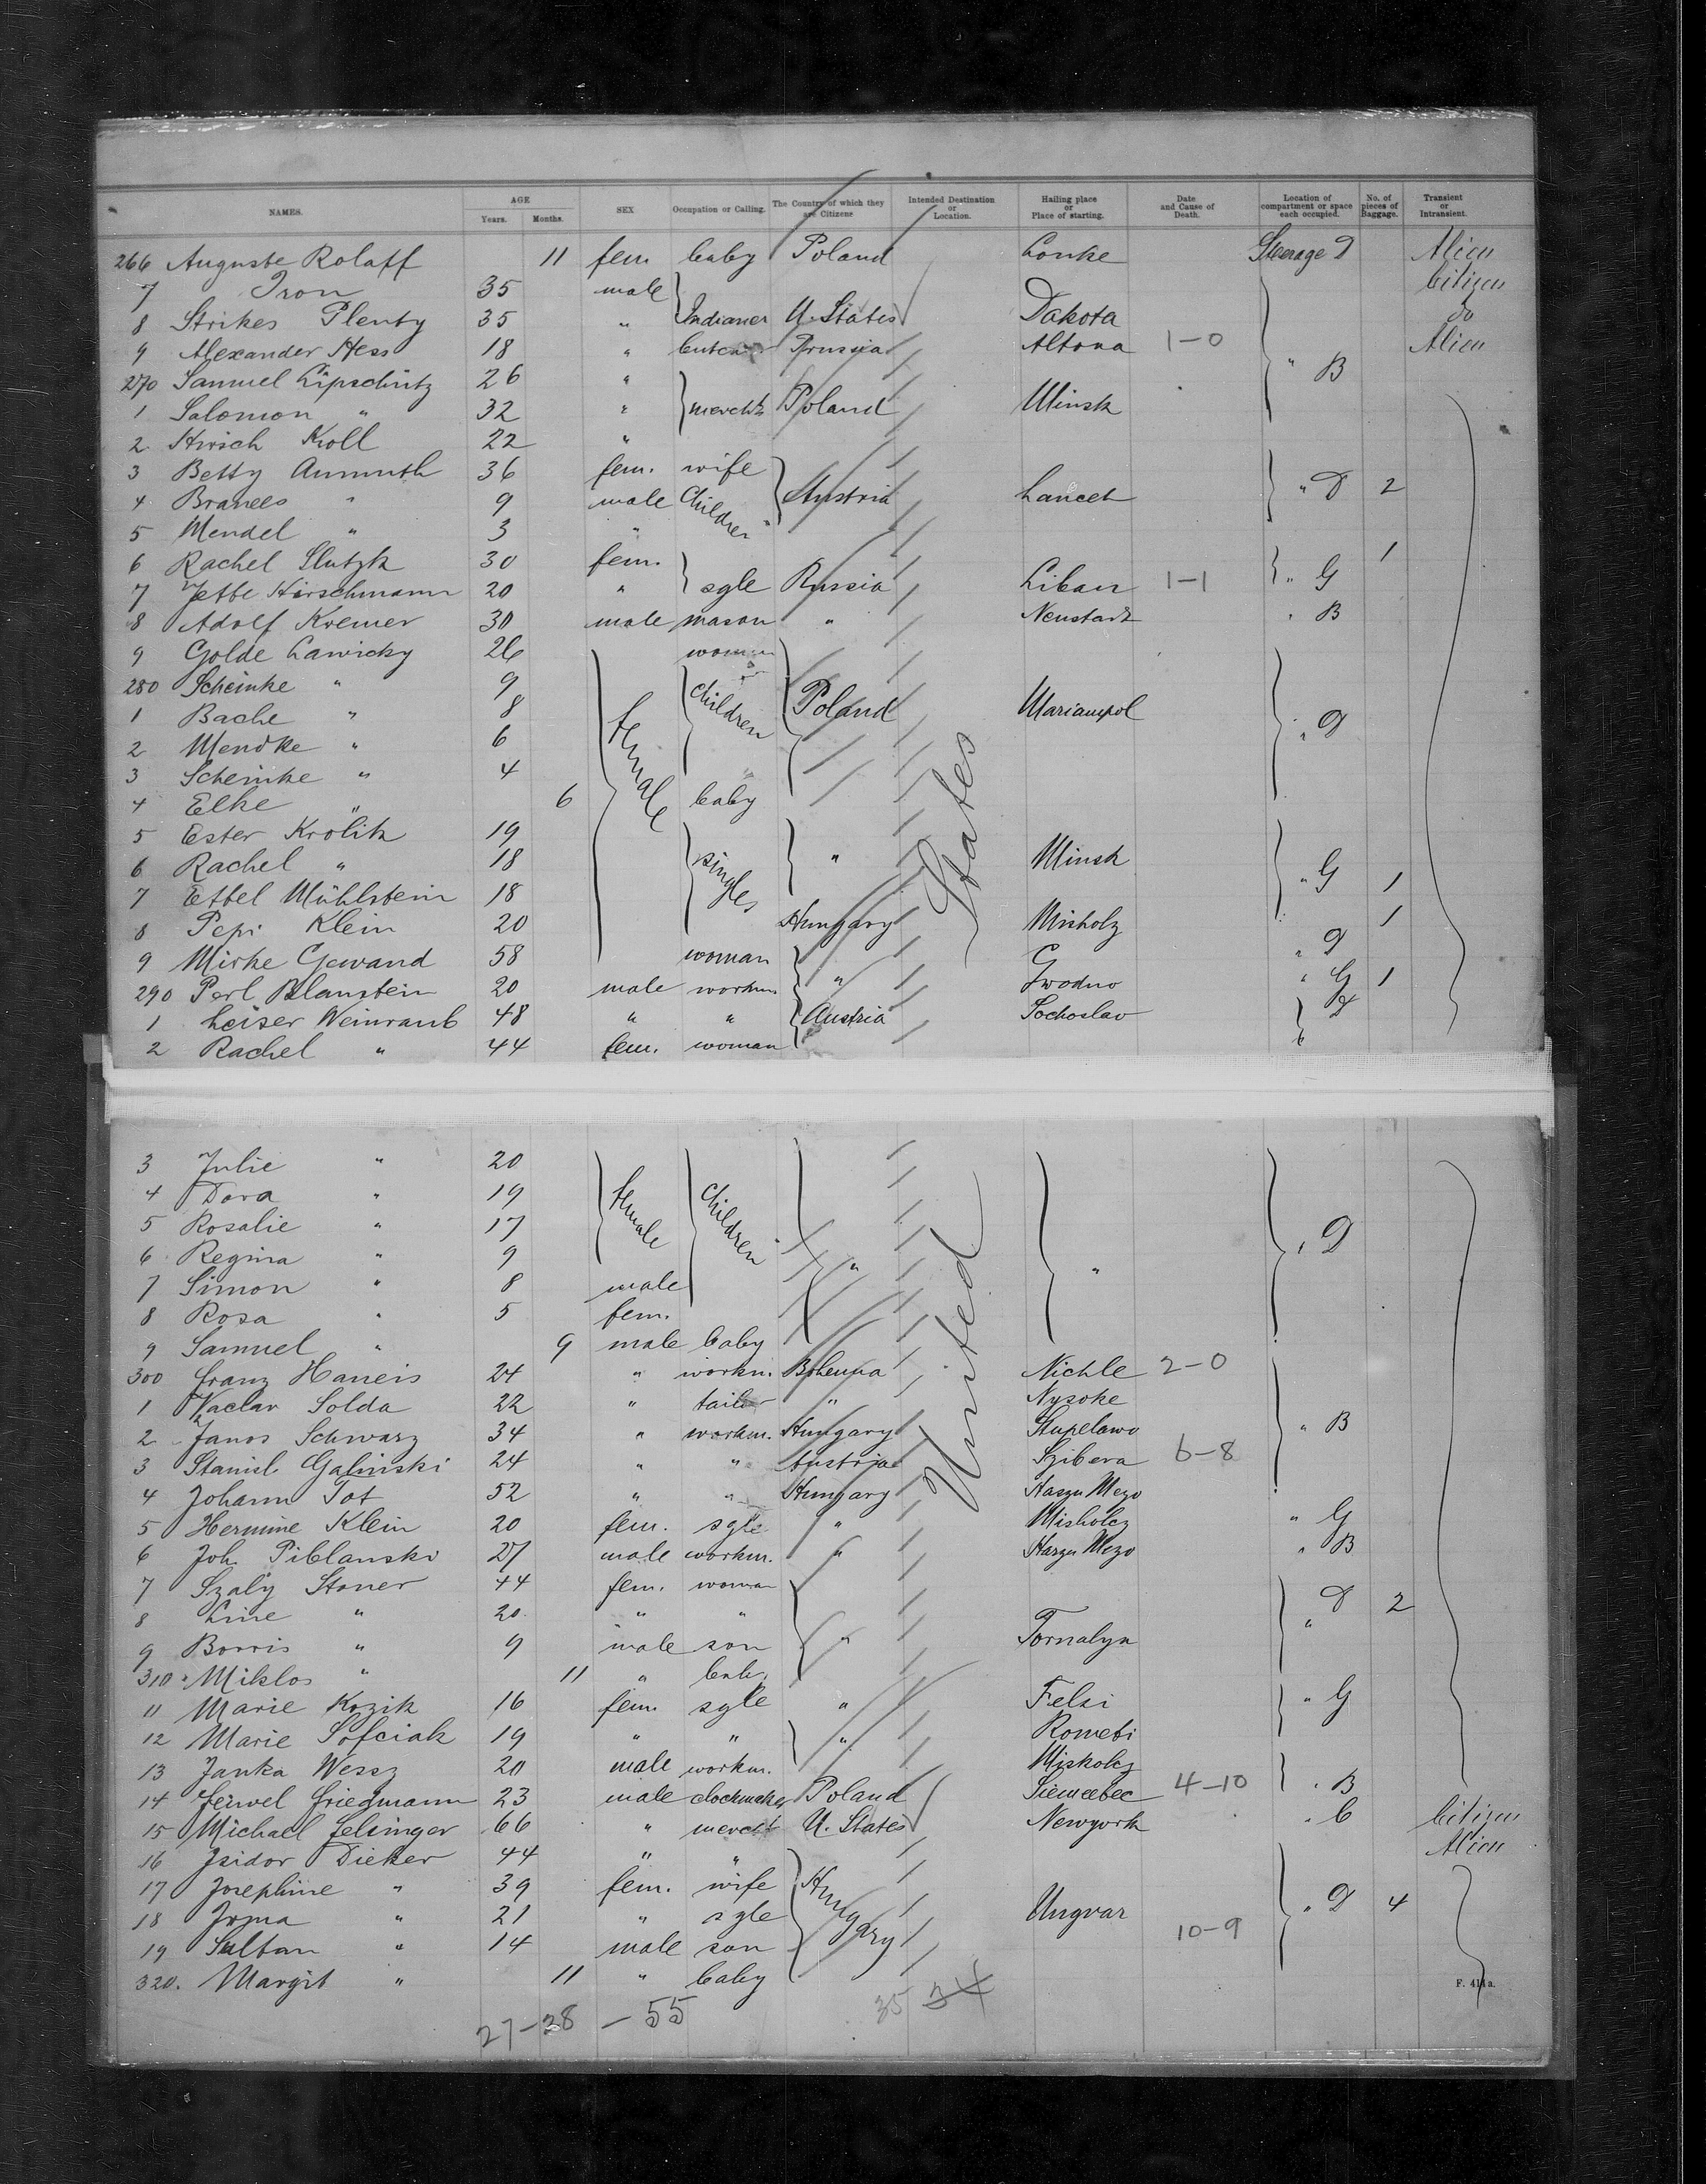 NAMES. AGE Years. Months. SEX Occupation or Calling. The Country of which they are Citizens Intended Destination or Location. Hailing place or Place of starting. Date and Cause of Death. Location of compartment or space each occupied. No. of pieces of Baggage. Transient or Intransient.
266 Auguste Rolaff 11 fem. baby Poland Lonke Steerage D Alien
7 Iron 35 male Citizen
8 Strikes Plenty 35 " Indianer U. States Dakota do
9 Alexander Hess 18 " Prussia Altona 1-0 Alien
270 Samuel Lipschütz 26 " " B
1 Salomon " 32 " merchts Poland Minsk
2 Hirsch Kroll 22 "
3 Betty Anmuth 36 fem. wife
4 Branees " 9 male Children Austria Lancet " D 2
5 Mendel " 3 "
6 Rachel Slutzk 30 fem. 1
7 Jette Hirschmann 20 " sgle Russia Libau 1-1 " G
8 Adolf Kremer 30 male mason " Neustadt " B
9 Golde Lawicky 26 woman
280 Scheinke " 9 female children Poland Mariampol
1 Bache " 8 " D
2 Mendke " 6
3 Scheinke " 4
4 Elke " 6 baby
5 Ester Krolik 19
6 Rachel " 18 singles " Minsk " G
7 Ettel Mühlstein 18 1
8 Pepi Klein 20 Hungary Misholz 1
9 Mirke Gewand 58 woman " " D
290 Perl Blanstein 20 male workm. Grodno " G 1
1 Leiser Weinraub 48 " " Austria Sochoslav D
2 Rachel " 44 fem. woman
3 Julie " 20
4 Dora " 19 female children
5 Rosalie " 17
6 Regina " 9 " " " D
7 Simon " 8 male
8 Rosa " 5 fem.
9 Samuel " 9 male baby
300 Franz Haneis 24 " workm. Bohemia Nichle 2-0
1 Vaclav Solda 22 " tailor " Nysoke
2 Janos Schwarz 34 " workm. Hungary Stupelawo " B
3 Stanisl. Galinski 24 " " Austria Szibera 6-8
4 Johann Tot 52 " " Hungary Haszu Mezo
5 Hermine Klein 20 fem. sgle " Misholcz " G
6 Joh. Piblanski 27 male workm. " Harzu Mezo " B
7 Szaly Stoner 44 fem. woman D 2
8 Line " 20 " " "
9 Borris " 9 male son " Tornalya
310 Miklos " 11 " baby
11 Marie Kozik 16 fem. sgle " Felsi " G
12 Marie Sofciak 19 " " " Rometi
13 Janka Wessz 20 male workm. Miskolcz
14 Friegmann 23 male clockmaker Poland Siemeebec 4-10 " B
15 Michael Felsinger 66 " mercht U. States Newyork " C Citizen
16 Isidor Dieker 44 " " Alien
17 Josephine " 39 fem. wife Hungary
18 Irma " 21 " sgle Ungvar " D 4
19 Sultan " 14 male son 10-9
320. Margit " 11 " baby
United States
F. 414a.
27-28 - 55 35 34